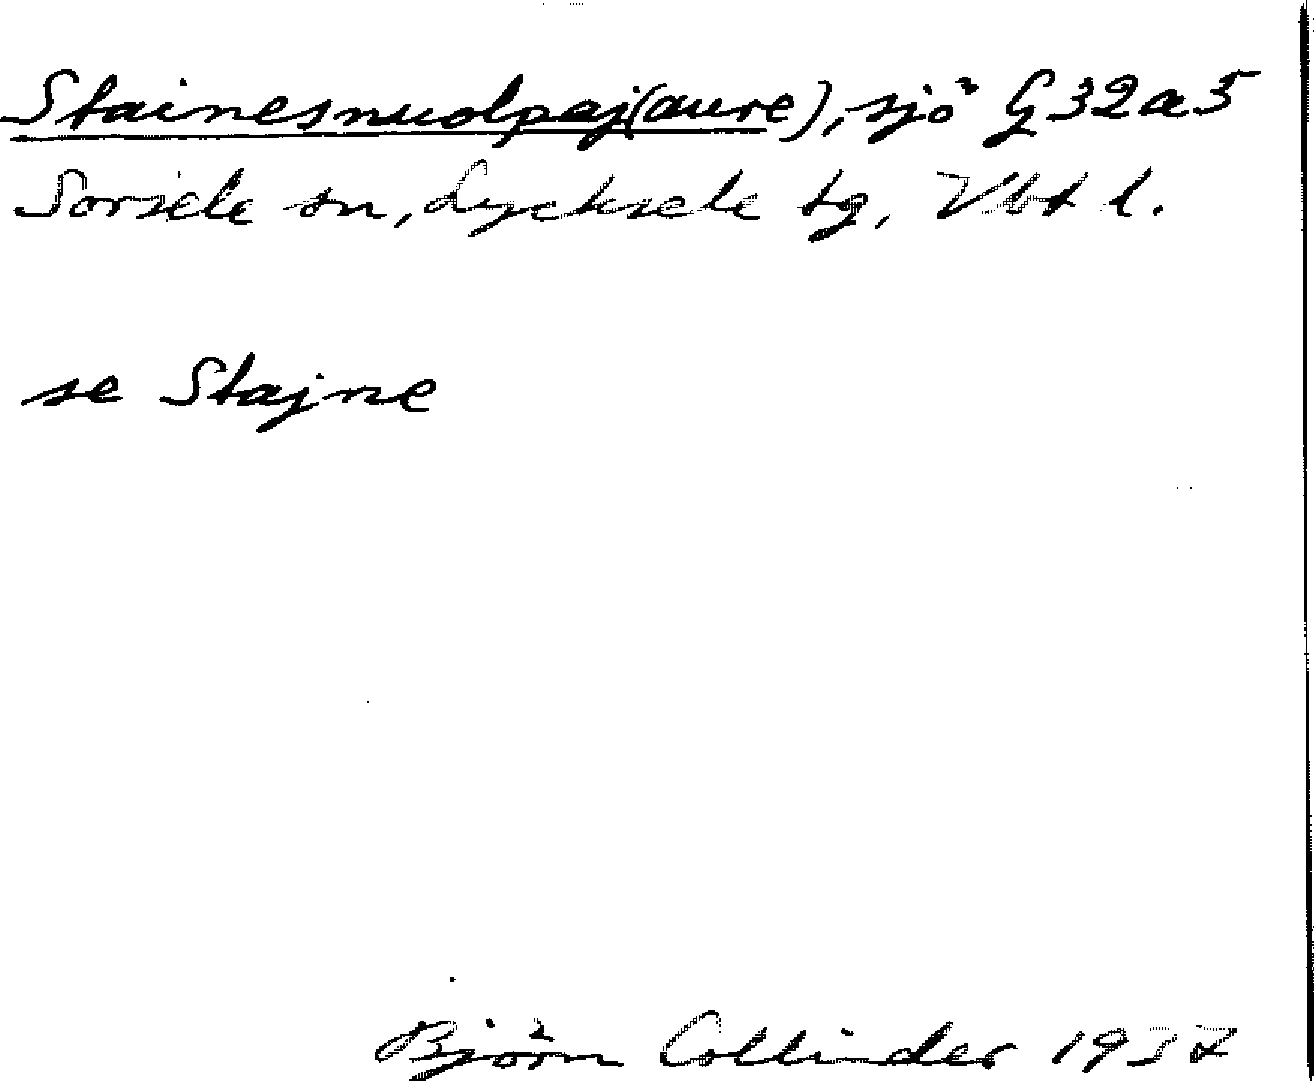 Stainesnuolpaj(aure), sjö G32a5
Sorsele sn, Lycksele tg, Vbt l.
se Stajne
Björn Collinder